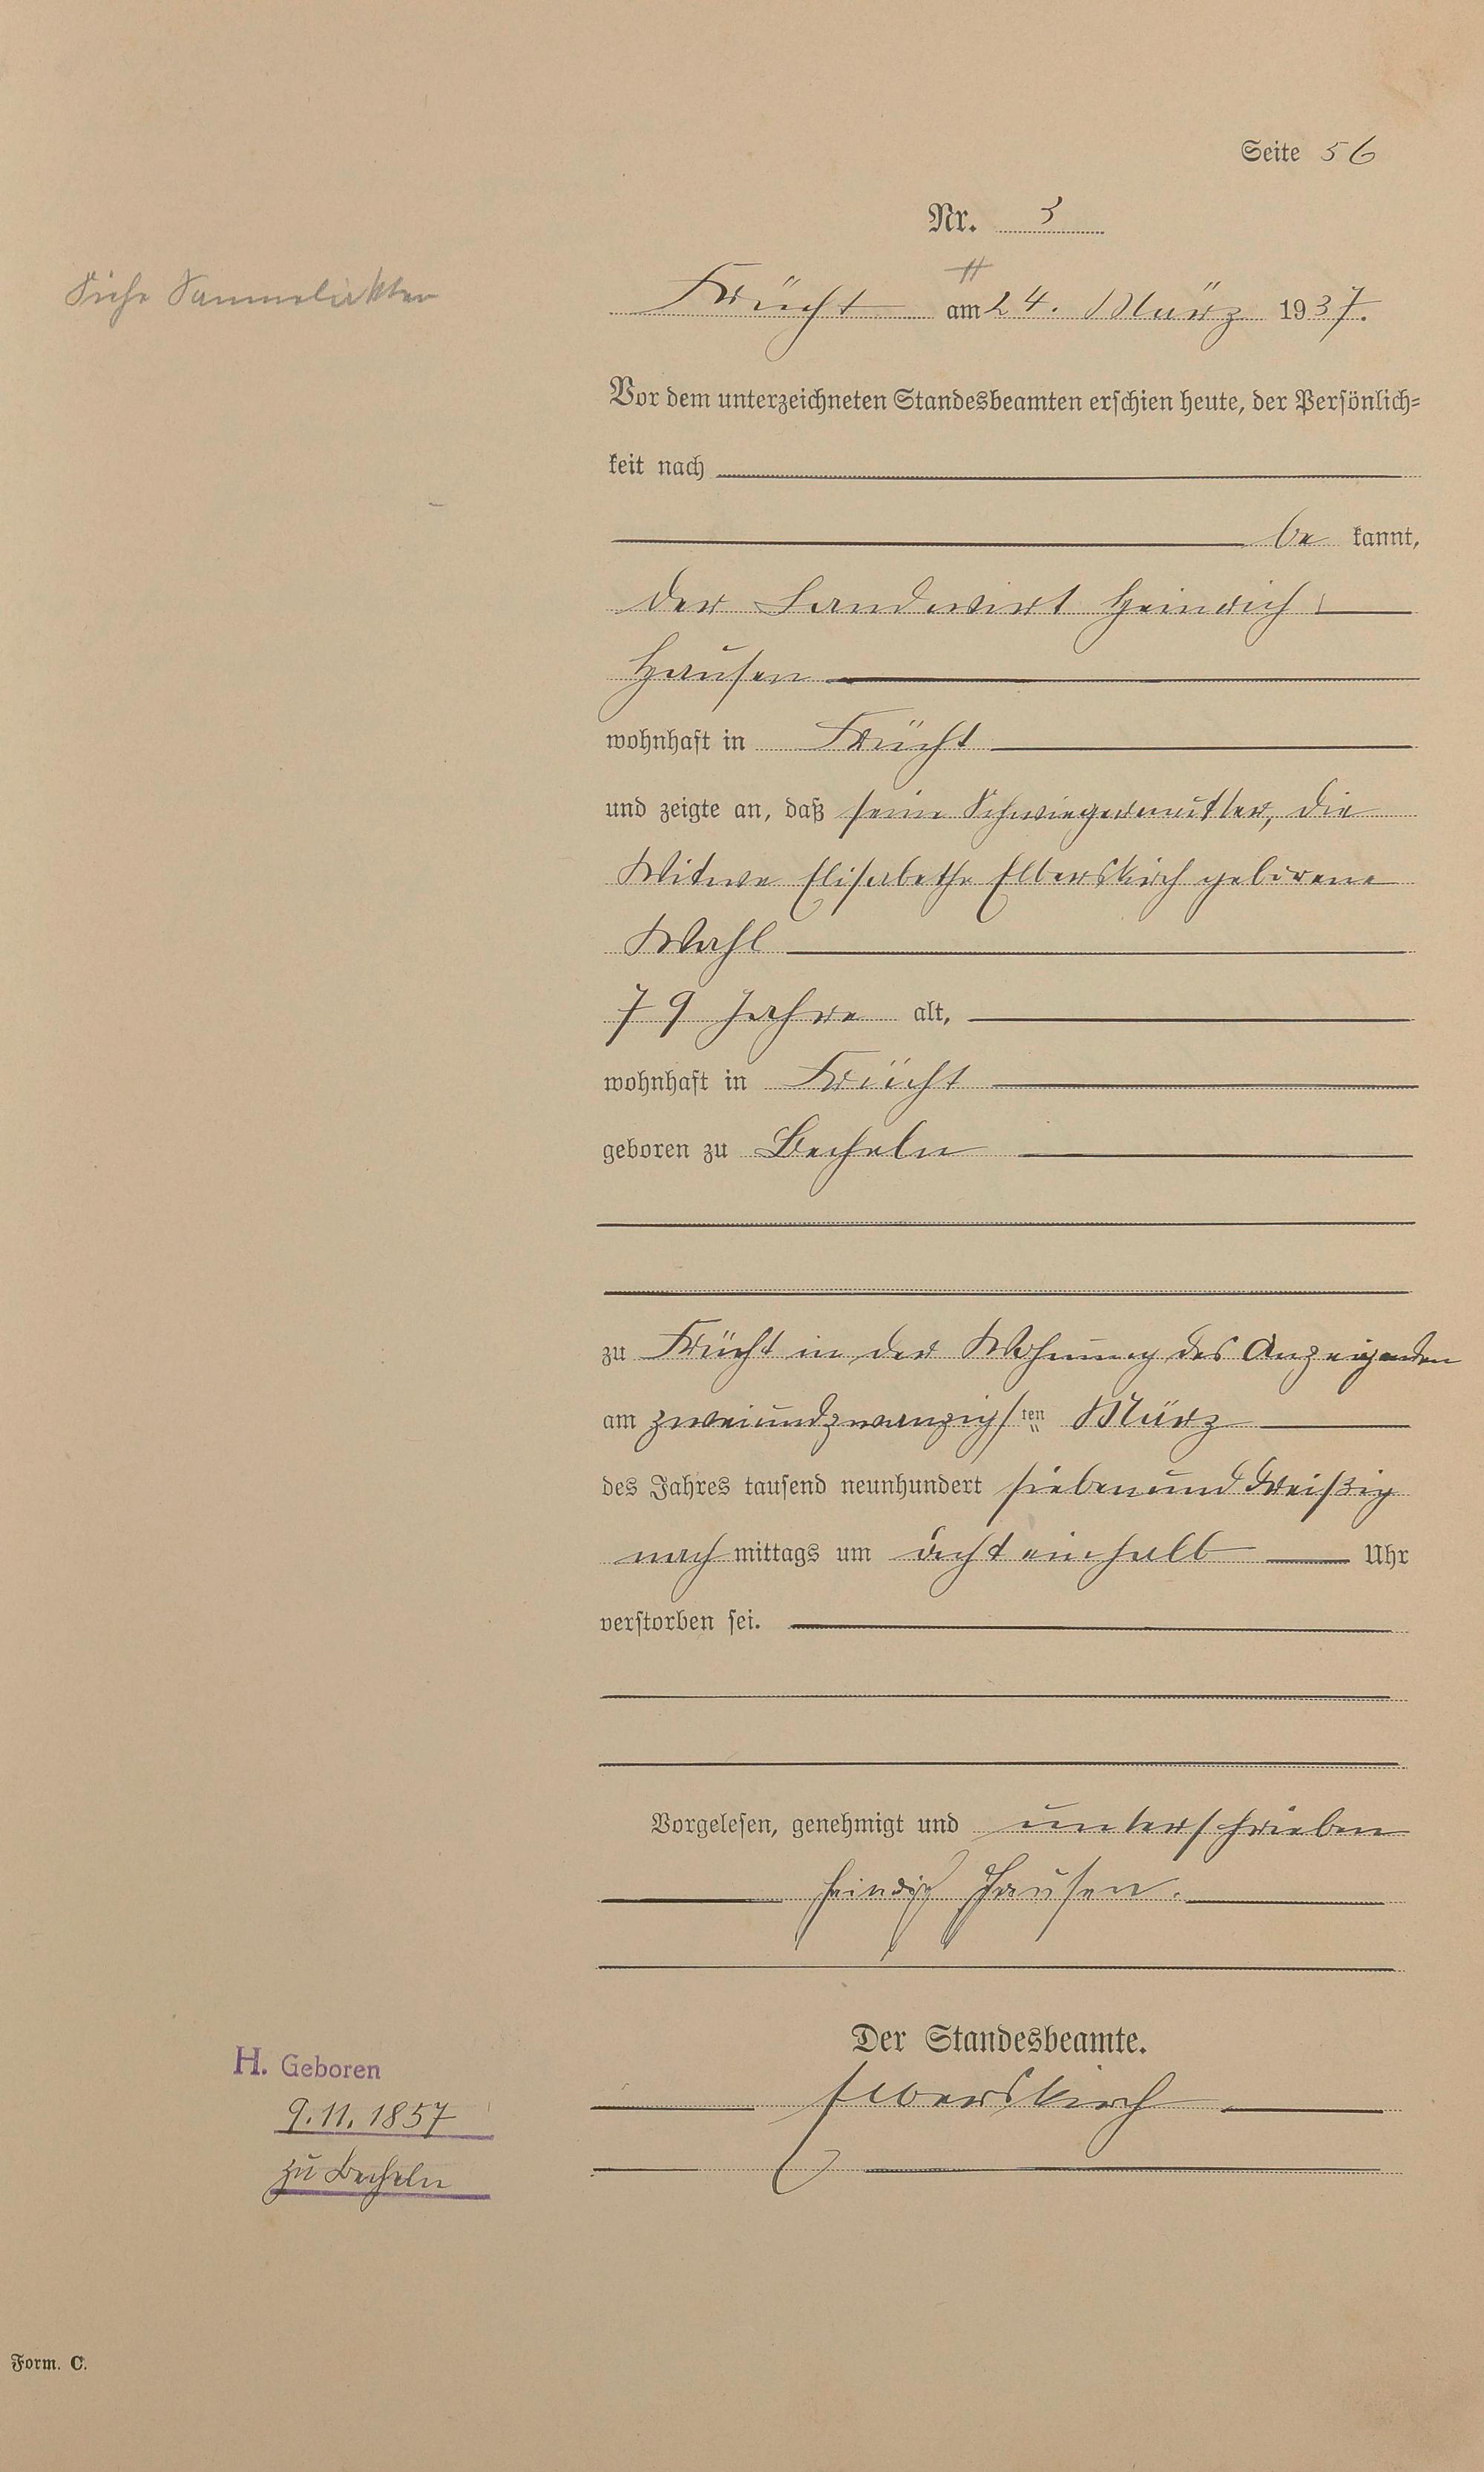 Seite 56
Nr. 3
Siehe Sammelakten
Frücht am 24. März 1937.
Vor dem unterzeichneten Standesbeamten erschien heute, der Persönlich-
keit nach
be kannt,
der Landwirt Heinrich
Hausen
wohnhaft in Frücht
und zeigte an, daß seine Schwiegermutter, die
Witwe Elisabethe Elberskirch geborene
Wahl
79 Jahre alt,
wohnhaft in Frücht
geboren zu Becheln
zu Frücht in der Wohnung des Anzeigenden
am zweiundzwanzigsten März
des Jahres tausend neunhundert siebenunddreißig
nachmittags um acht einhalb Uhr
verstorben sei.
Vorgelesen, genehmigt und unterschrieben
Heinrich Hausen.
Der Standesbeamte.
Elberskirch
H. Geboren
9.11.1857
zu Becheln
Form. C.